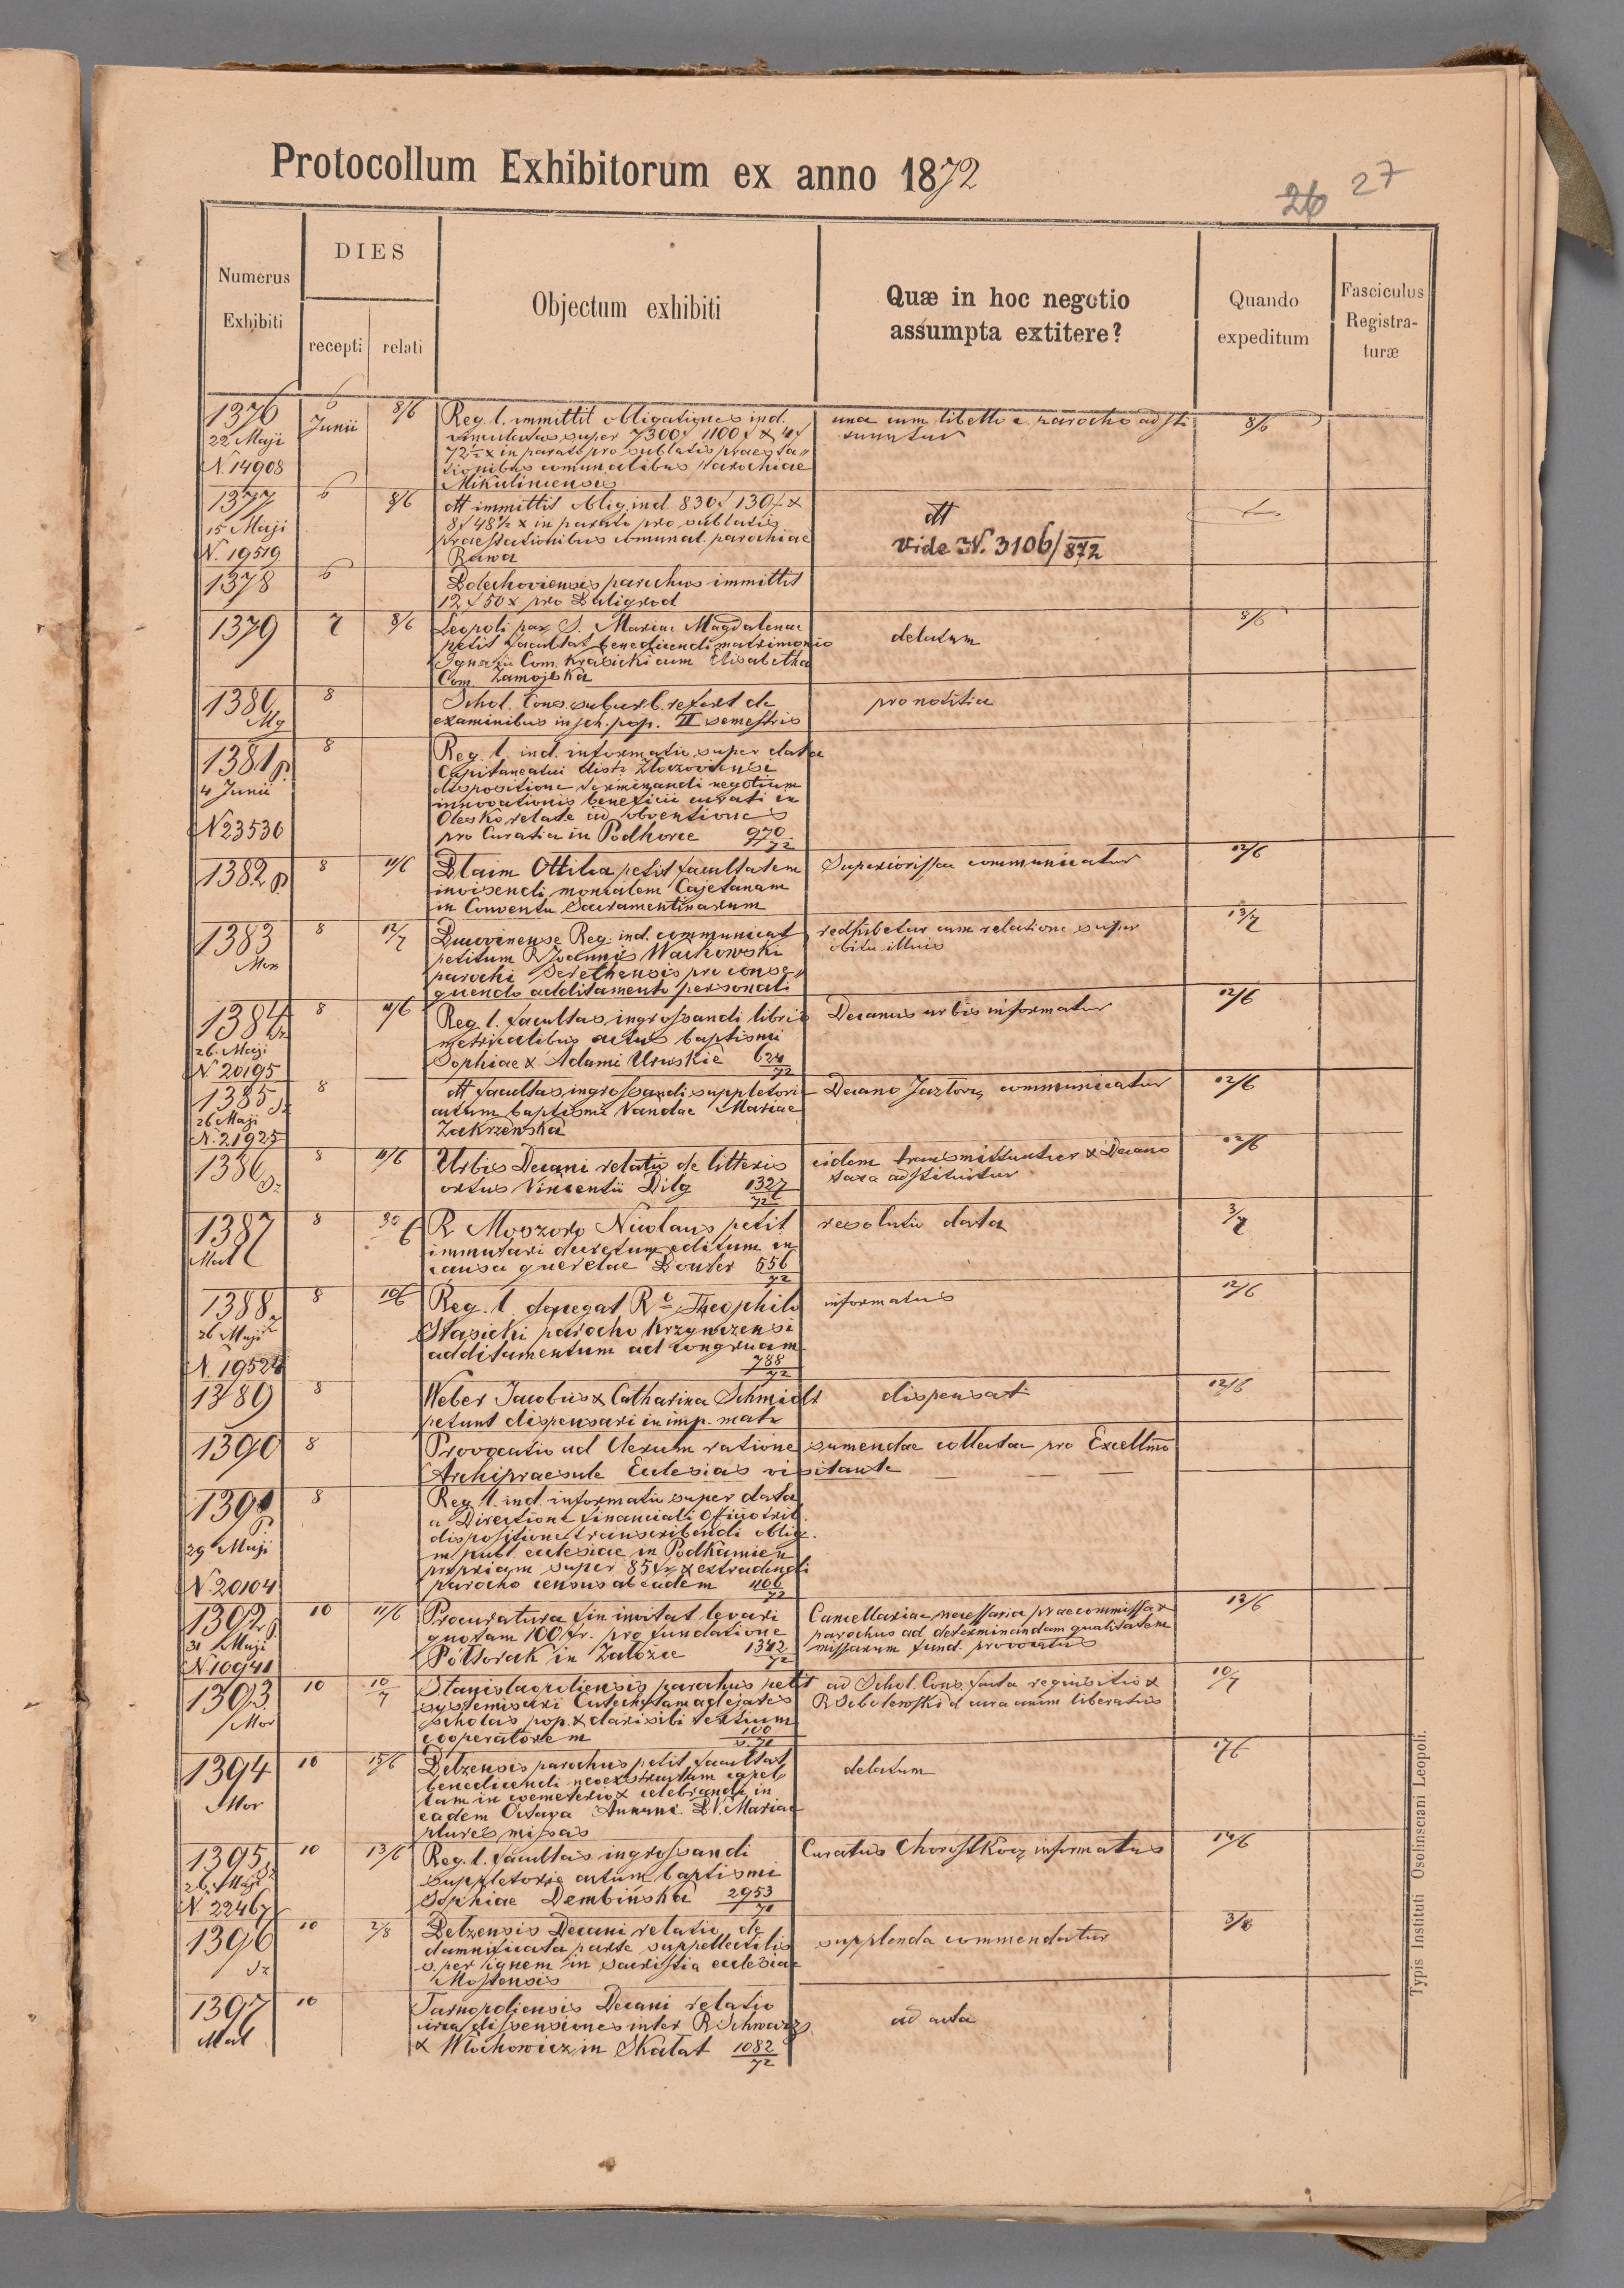 Protocollum Exhibitorum ex anno 1872
26 27
Numerus
Exhibiti
DIES
recepti
relati
Objectum exhibiti
Quæ in hoc negotio
assumpta extitere?
Quando
expeditum
Fasciculus
Registra-
turæ
1376
22 Maji
N. 14908
6
Junii
8/6
Reg. l. immittit obligationes ind.
vinculatas super 7300f 1100f & 4f
72½x in parato pro sublatis praesta„
tionibus comunalibus parochiae
Mikuliniensis
una cum libello a parocho adsti
uuntur
8/6
1377
15 Maji
N. 19519
6
8/6
dtt immittit oblig. ind. 830f 130f &
8f 48½ x in parato pro sublatis
praestationibus comunal. parochiae
Rawa
dtt
vide N. 3106/872
1378
6
Dolechoviensis parochus immittit
12f 50x pro Baligrod
1379
7
8/6
Leopoli par S. Mariae Magdalenae
petit facultat benedicendi matrimonio
Ignatii Com. Krasicki cum Elisabetha
Com. Zamojska
delatum
8/6
1380
Mg
8
Schol. Cons. suburb. refert de
examinibus in sch. pop. II semestris
pro notitia
1381 p.
4 Junii
N 23536
8
Reg. l. ind. informatio super data
Capitaneatui distr. Zloczoviensi
dispositione terminandi negotium
innovationis beneficii curati in
Olesko relate ad obventiones
pro Curatia in Podhorce 970/72
1382 p
8
11/6
Blaim Ottilia petit facultatem
invisendi monialem Cajetanam
in Conventu Sacramentinarum
Superiorissa communicatur
12/6
1383
Mor
8
12/7
Bucovinense Reg. ind. communicat
petitum R Joannis Wachowski
parochi Serethensis pro conse„
quendo additamento personali
redhibetur cum relatione super
obitu illius
13/7
1384 Sz
26. Maji
N. 20195
8
11/6
Reg. l. facultas ingrossandi libris
metricalibus actus baptismi
Sophiae & Adami Uruskie 624/72
Decanus urbis informatur
12/6
1385 Sz
26 Maji
N. 21925
8
dtt facultas ingrossandi suppletorie
actum baptismi Vandae Mariae
Zakrzewska
Decano Jazlow. communicatur
12/6
1386
Sz
8
11/6
Urbis Decani relatio de litteris
ortus Vincentii Dilg 1327/72
eidem transmittuntur & Decano
taxa adstituitur
12/6
1387
Mal
8
30/6
R Moszoro Nicolaus petit
immutari decretum editum in
causa querelae Bouter 556/72
resolutio data
3/7
1388
26 Maji
N. 19524
8
10/6
Reg. l. denegat Rdo Theophilo
Stasicki parocho Krzywczensi
additamentum ad congruam
788/72
informatus
12/6
1389
8
Weber Jacobus & Catharina Schmidt
petunt dispensari in imp. matr
dispensat
12/6
1390
8
Provocatio ad Clerum ratione sumendae collectae pro Excellmo
Archipraesule Ecclesias visitante
1391
p
29 Maji
N. 20104
8
Reg. l. ind. informatio super data
a Directione financiali Officio trib.
dispositione transcribendi oblig.
m publ. ecclesiae in Podkamien
propriam super 85f & extradendi
parocho census ab eadem 406/72
1392 p.
31 Maji
N 10941
10
11/6
Procuratura fin invitat levari
quotam 100 fr. pro fundatione
Półtorak in Załoźce 1342/72
Cancellariae necessaria praecommissa &
parochus ad determinandam qualitatem
missarum fund. provocatus
13/6
1393
Mor
10
10/7
Stanislaopoliensis parochus petit
systemisari Catechetam ad ejates
scholas pop. & dari sibi tertium
cooperatorem
100/v. 71
ad Schol. Cons. facta requisitio &
R Sobolewski d cura anim liberatus
10/7
1394
Mor
10
15/6
Belzensis parochus petit facultat
benedicendi neoexstructam capel„
lam in coemeterio & celebrandi in
eadem Octava Annunc. B.V. Mariae
plures missas
delatum
17/6
1395 Sz
26. Maji
N 22467
10
13/6
Reg. l. facultas ingrossandi
suppletorie actum baptismi
Sophiae Dembińska 2953/71
Curatus Chorostkow. informatus
14/6
1396
Sz
10
2/8
Belzensis Decani relatio de
damnificata parte suppellectilis
s. per ignem in sacristia ecclesiae
Mostensis
supplenda commendatur
3/8
1397
Mal
10
Tarnopoliensis Decani relatio
circa dissensiones inter R Schwarz
& Włochowicz in Skałat 1082/72
ad acta
Typis Instituti Ossolinsciani Leopoli.